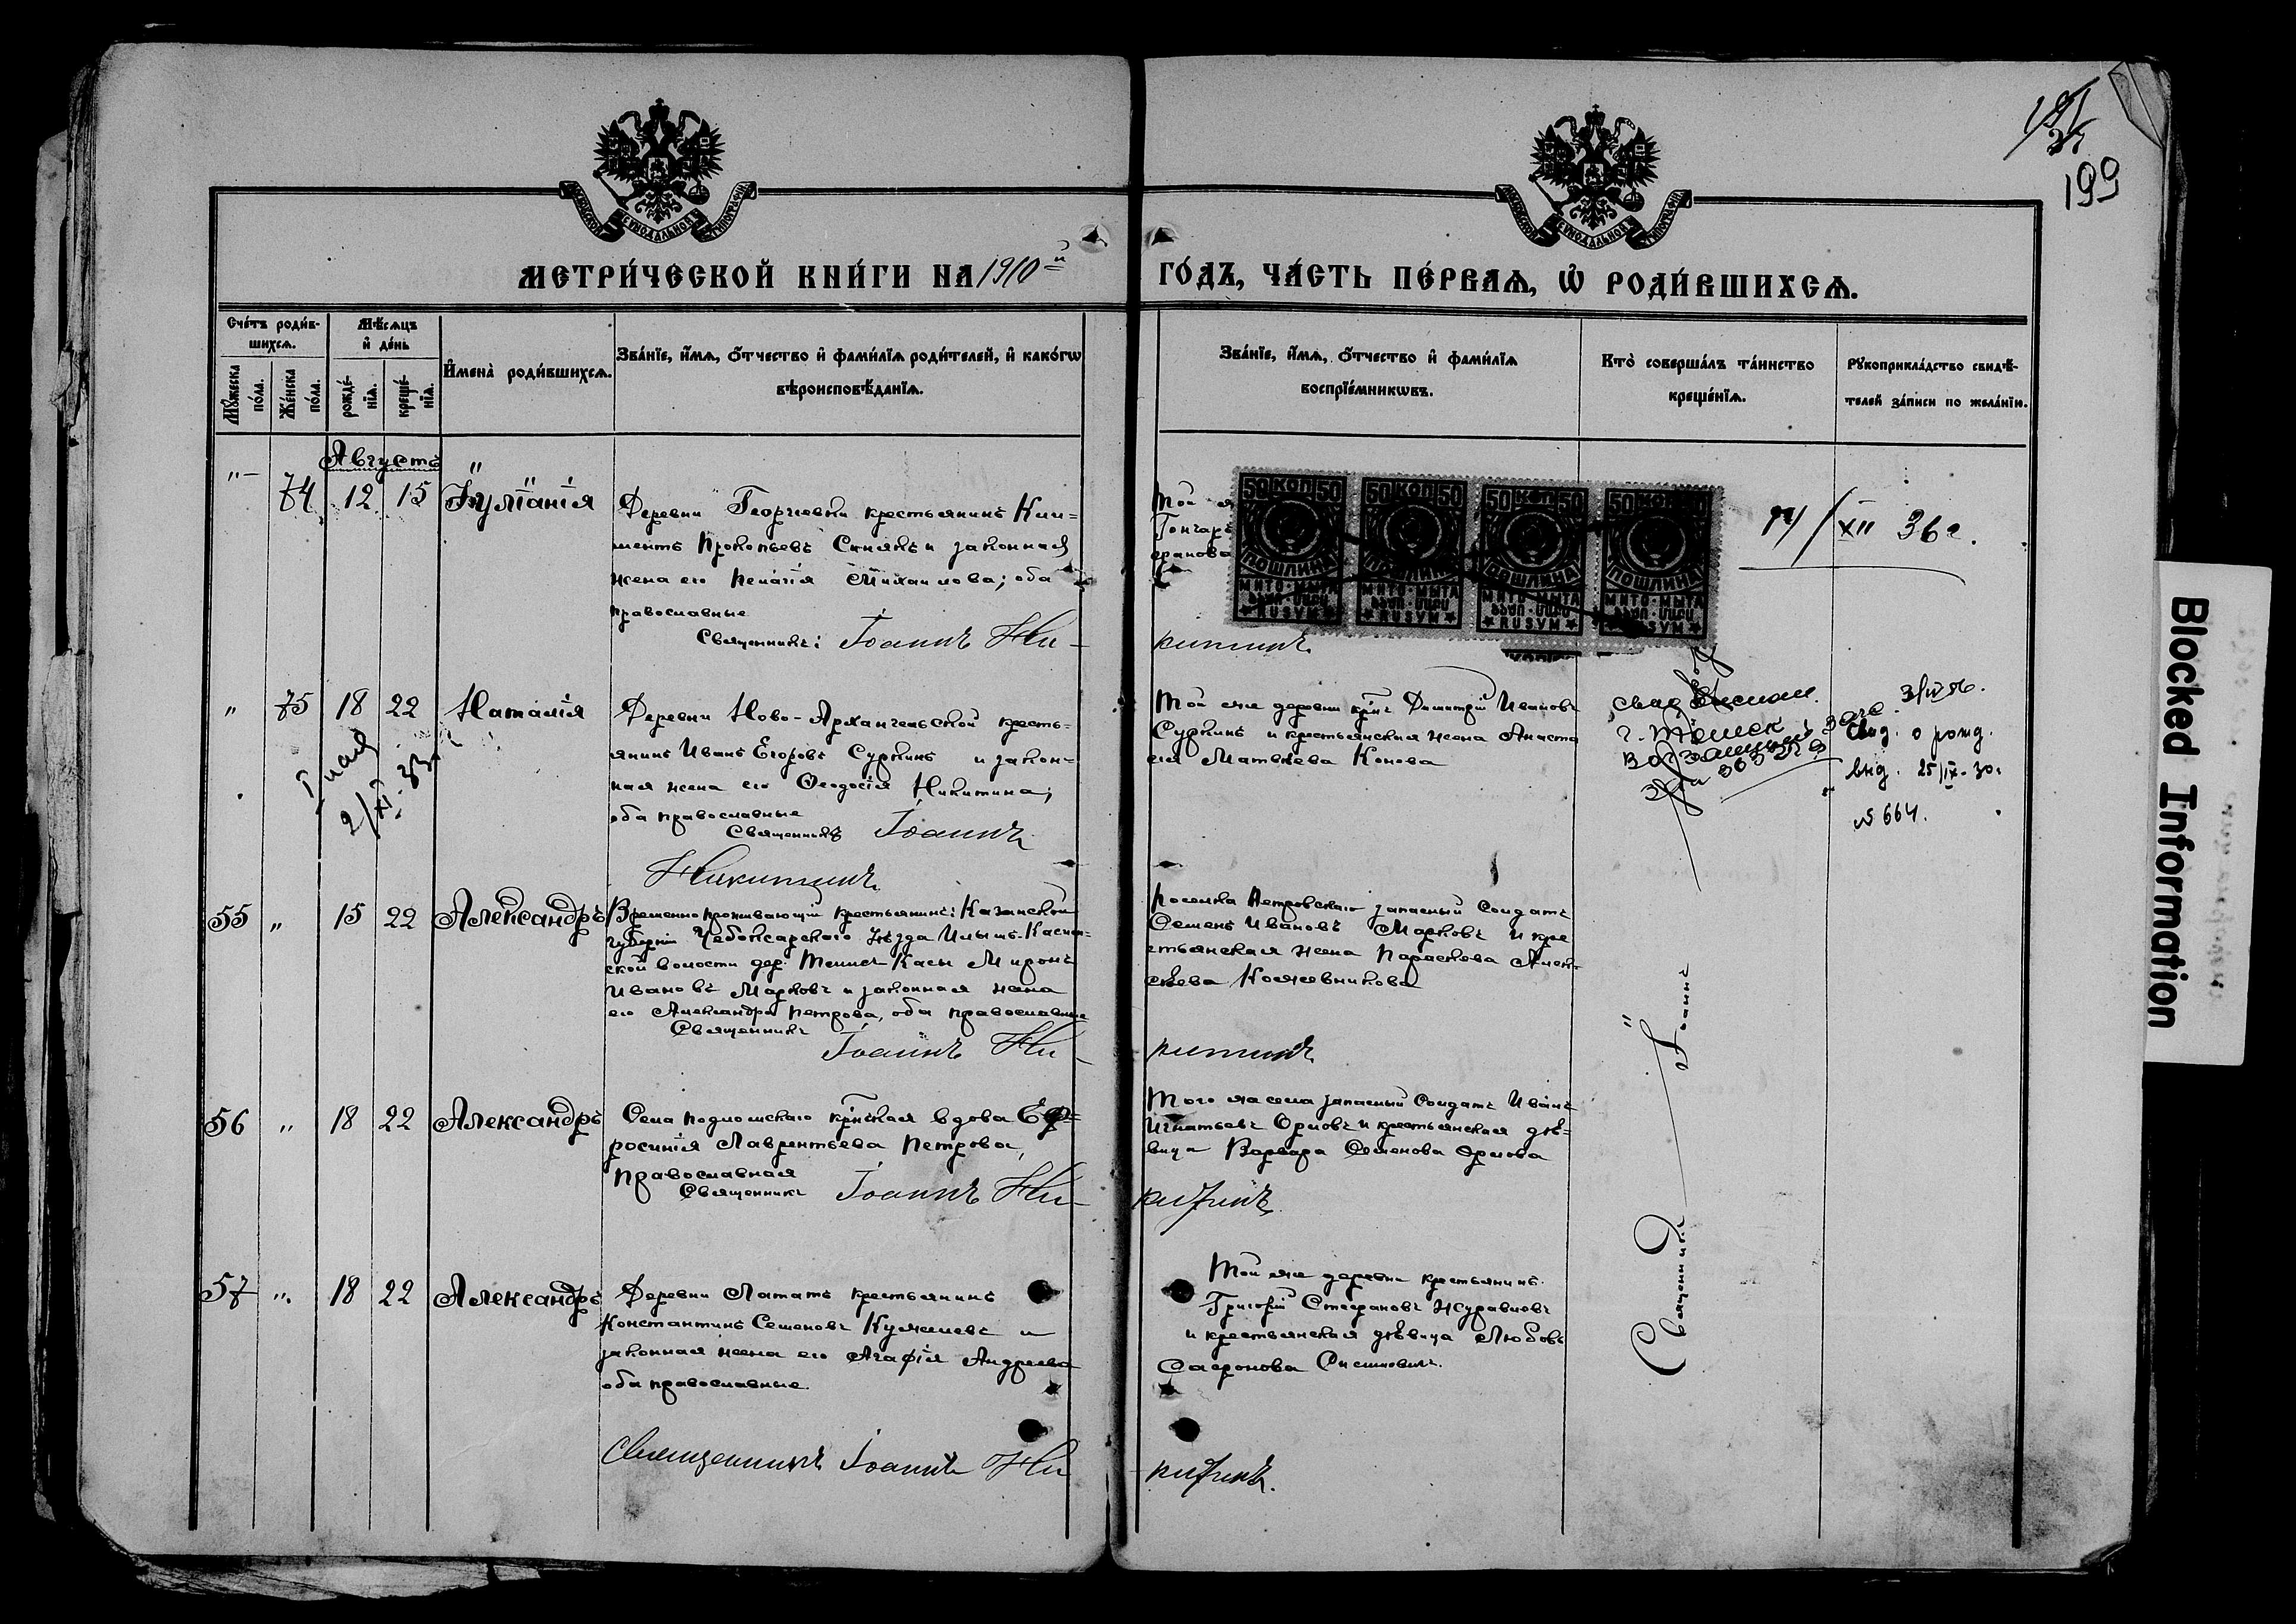 199
МОСКОВСКОЙ СѴНОДАЛЬНОЙ ТИПОГРАФІИ
МОСКОВСКОЙ СѴНОДАЛЬНОЙ ТИПОГРАФІИ
МЕТРИ́ЧЕСКОЙ КНИ́ГИ НА 1910й ГО́ДЪ, ЧА́СТЬ ПЕ́РВАѦ, Ѡ҆ РОДИ́ВШИХСѦ.
Сче́тъ роди́в-
шихсѧ.
Мꙋ́жеска по́ла.
Же́нска по́ла.
Мѣ́сѧцъ и҆ де́нь
рожде́-нїѧ.
креще́-нїѧ.
И҆мена̀ роди́вшихсѧ.
Зва́нїе, и҆́мѧ, ѻ҆́тчество и҆ фами́лїѧ роди́телей, и҆ како́гѡ
вѣроисповѣ́данїѧ.
Зва́нїе, и҆́мѧ, ѻ҆́тчество и҆ фами́лїѧ
воспрїе́мникѡвъ.
Кто̀ соверша́лъ та́инство
креще́нїѧ.
Рꙋкоприкла́дство свидѣ́-
телей за́писи по жела́нїю.
Августъ
74 12 15 Іуліанія
Деревни Георгіевки крестьянинъ Кли-
ментъ Прокопьевъ Синякъ и законная
жена его Пелагія Михаилова; оба
православные
Священникъ: Іоаннъ Ни-
Той
Гончаръ
китинъ.
50 КОП 50
ПОШЛИНА
МИТО·МЫТА
RUSУМ
50 КОП 50
ПОШЛИНА
МИТО·МЫТА
RUSУМ
50 КОП 50
ПОШЛИНА
МИТО·МЫТА
RUSУМ
50 КОП 50
ПОШЛИНА
МИТО·МЫТА
RUSУМ
XII 36 г.
" 75 18 22 Наталія
Деревни Ново-Архангельской кресть-
янинъ Иванъ Егоровъ Суркинъ и закон-
ная жена его Ѳеодосія Никитина;
оба православные
Священникъ Іоаннъ
Никитинъ
Той же деревни крнъ Димитрій Ивановъ
Суркинъ и крестьянская жена Анаста
сія Матвѣева Конова
Свид. о рожд.
выд. 25/IX-30г
№ 664.
2/XI-33
55 " 15 22 Александръ
Временно проживающій крестьянинъ: Казанской
губерніи Чебоксарскаго Уѣзда
ской волости дер. Миронъ
Ивановъ Марковъ и законная жена
его Александра Петрова, оба православные
Священникъ
Іоаннъ Ни-
Поселка Петровскаго запасный Солдатъ
Семенъ Ивановъ Марковъ и кре
стьянская жена Параскева Алек-
сѣева Кожевникова
китинъ
56 " 18 22 Александръ
Села крнская вдова Еф-
росинія Лаврентьева Петрова,
Православная
Священникъ Іоаннъ Ни-
Того же села запасный Солдатъ Иванъ
Игнатьевъ Орловъ и крестьянская дѣ-
вица Варвара Семенова Орлова
китинъ.
57 " 18 22 Александръ
Деревни Лататъ крестьянинъ
Константинъ Семеновъ и
законная жена его Агафія Андреева
оба православные.
Священникъ Іоаннъ Ни
Той же деревни крестьянинъ
Григорій Стефановъ Журавловъ
и крестьянская дѣвица Любовь
Сафронова
китинъ.
Священникъ Іоаннъ
Blocked Information